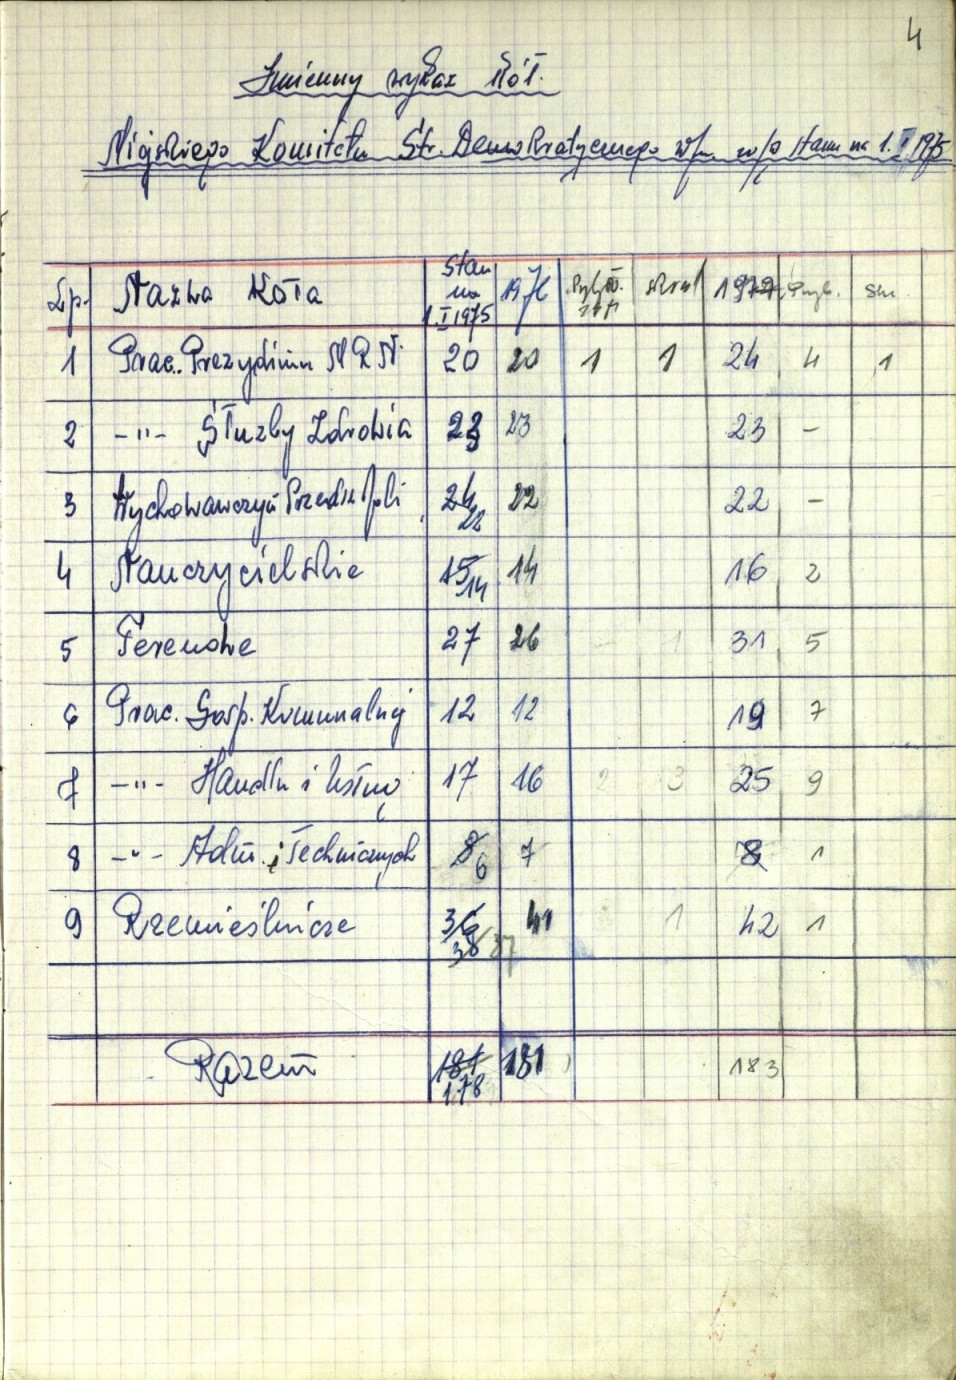 4
Imienny wykaz Kół.
Miejskiego Komitetu Str. Demokratycznego w/m. Stanu na 1.I 1975
Lp. Nazwa Koła Stan na 1.I 1975 1976 skreśl 1977 Przyb. Skr.
1 Prac. Prezydium M R N. 20 20 1 1 24 4 1
2 -"- Służby Zdrowia 23 23 23 -
3 Wychowawczyń Przedszkoli 24 22 22 22 -
4 Nauczycielskie 15 14 14 16 2
5 Terenowe 27 26 - 1 31 5
6 Prac. Gosp. Komunalnej 12 12 19 7
7 -"- Handlu i Usług 17 16 2 3 25 9
8 -"- Adm. i Technicznych 8 6 7 8 1
9 Rzemieślnicze 36 38 37 41 1 42 1
Razem 181 178 181 183